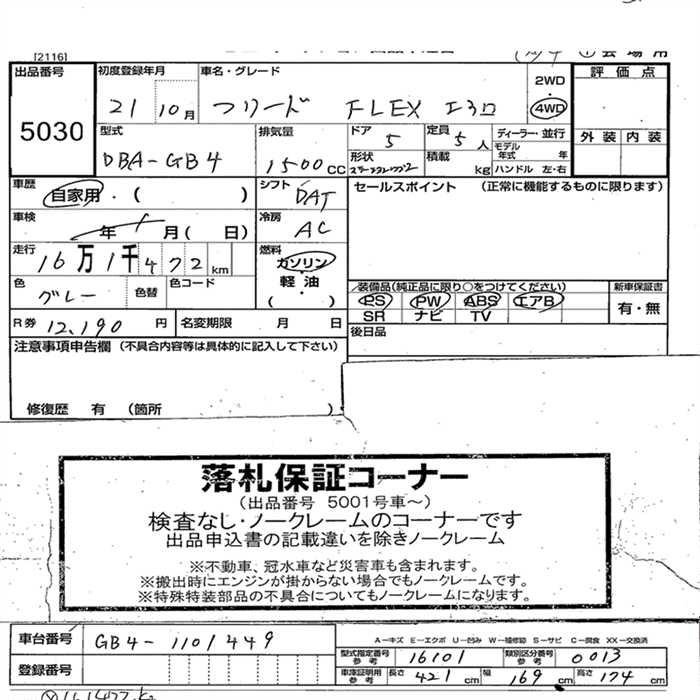 [2116]
出品番号 5030
初度登録年月 21 10月
車名・グレード フリード FLEX エアロ
2WD
4WD
評価点
外装 内装
型式 DBA-GB4
排気量 1500cc
ドア 5
定員 5人
ディーラー・並行
モデル年式 年
形状
積載 kg
ハンドル 左・右
車歴 自家用・( )
シフト DAT
セールスポイント (正常に機能するものに限ります)
車検 年 月( 日)
冷房 AC
走行 16万1千472km
燃料 ガソリン 軽油・( )
色 グレー
色替
色コード
装備品(純正品に限り○をつけてください)
PS PW ABS エアB
SR ナビ TV
新車保証書
有・無
R券 12,190円
名変期限 月 日
後日品
注意事項申告欄 (不具合内容等は具体的に記入して下さい)
修復歴 有 (箇所 )
落札保証コーナー
(出品番号 5001号車〜)
検査なし・ノークレームのコーナーです
出品申込書の記載違いを除きノークレーム
※不動車、冠水車など災害車も含まれます。
※搬出時にエンジンが掛からない場合でもノークレームです。
※特殊特装部品の不具合についてもノークレームになります。
車台番号 GB4-1101449
A-キズ E-エクボ U-凹み W-補修跡 S-サビ C-腐食 XX-交換済
型式指定番号 参考 16101
類別区分番号 参考 0013
登録番号
車庫証明用 参考 長さ 421cm 幅 169cm 高さ 174cm